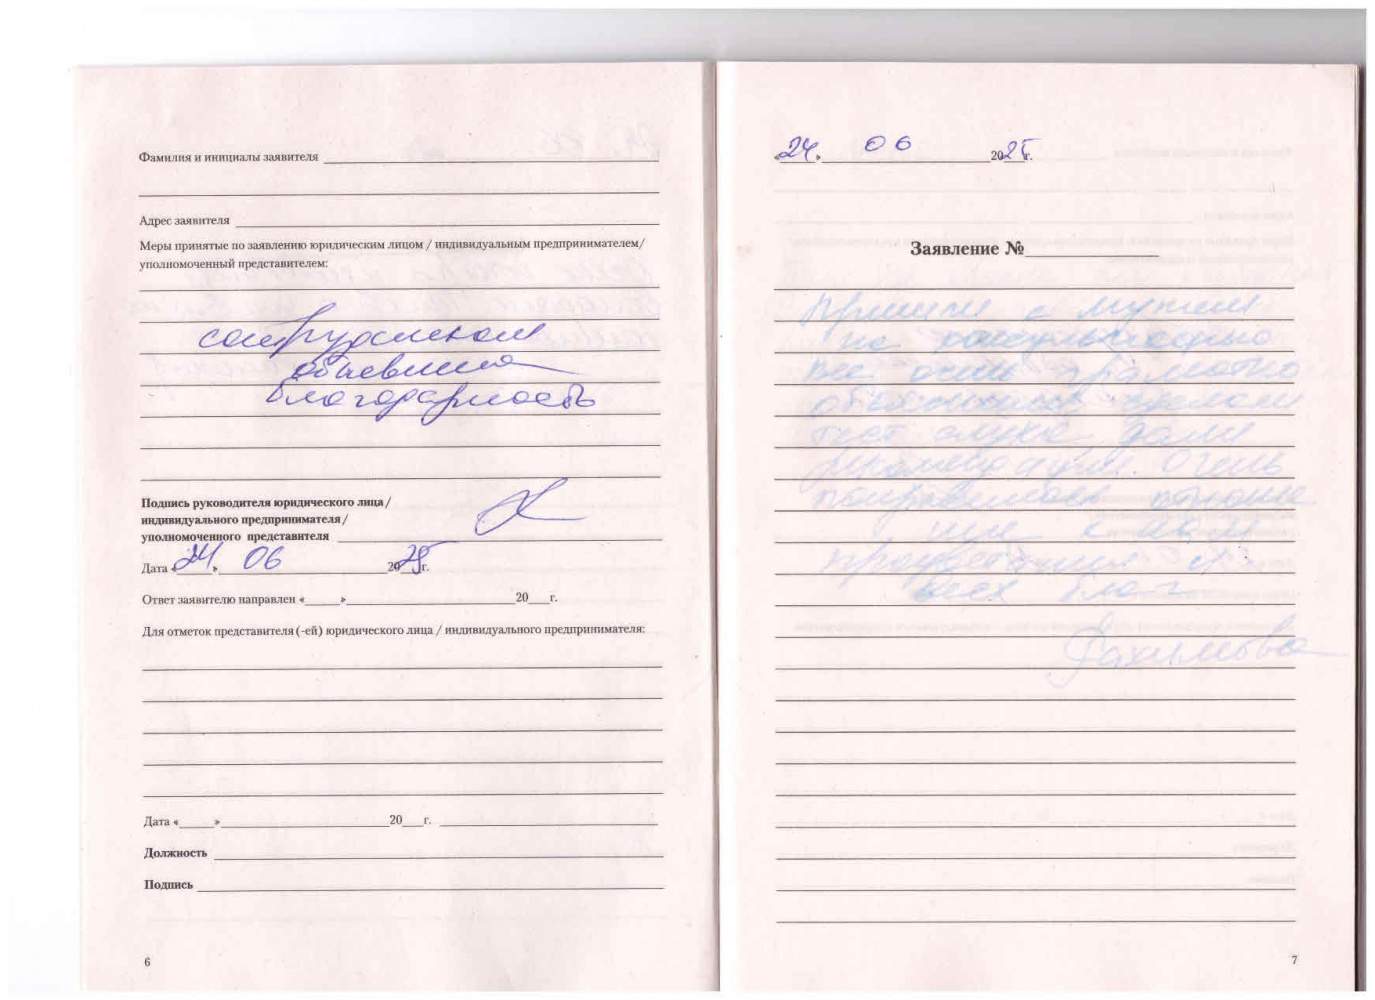 Фамилия и инициалы заявителя
Адрес заявителя
Меры принятые по заявлению юридическим лицом / индивидуальным предпринимателем/
уполномоченный представителем:
сотрудникам
объявлена
благодарность
Подпись руководителя юридического лица /
индивидуального предпринимателя /
уполномоченного представителя
Дата «24» 06 2025 г.
Ответ заявителю направлен « » 20 г.
Для отметок представителя (-ей) юридического лица / индивидуального предпринимателя:
Дата « » 20 г.
Должность
Подпись
6
«24» 06 2025 г.
Заявление №
Пришли с мужем
на консультацию
все очень грамотно
объяснили сделали
тест слуха дали
Очень
понравилось отноше
ние к нам
всех благ
Рахимова
7